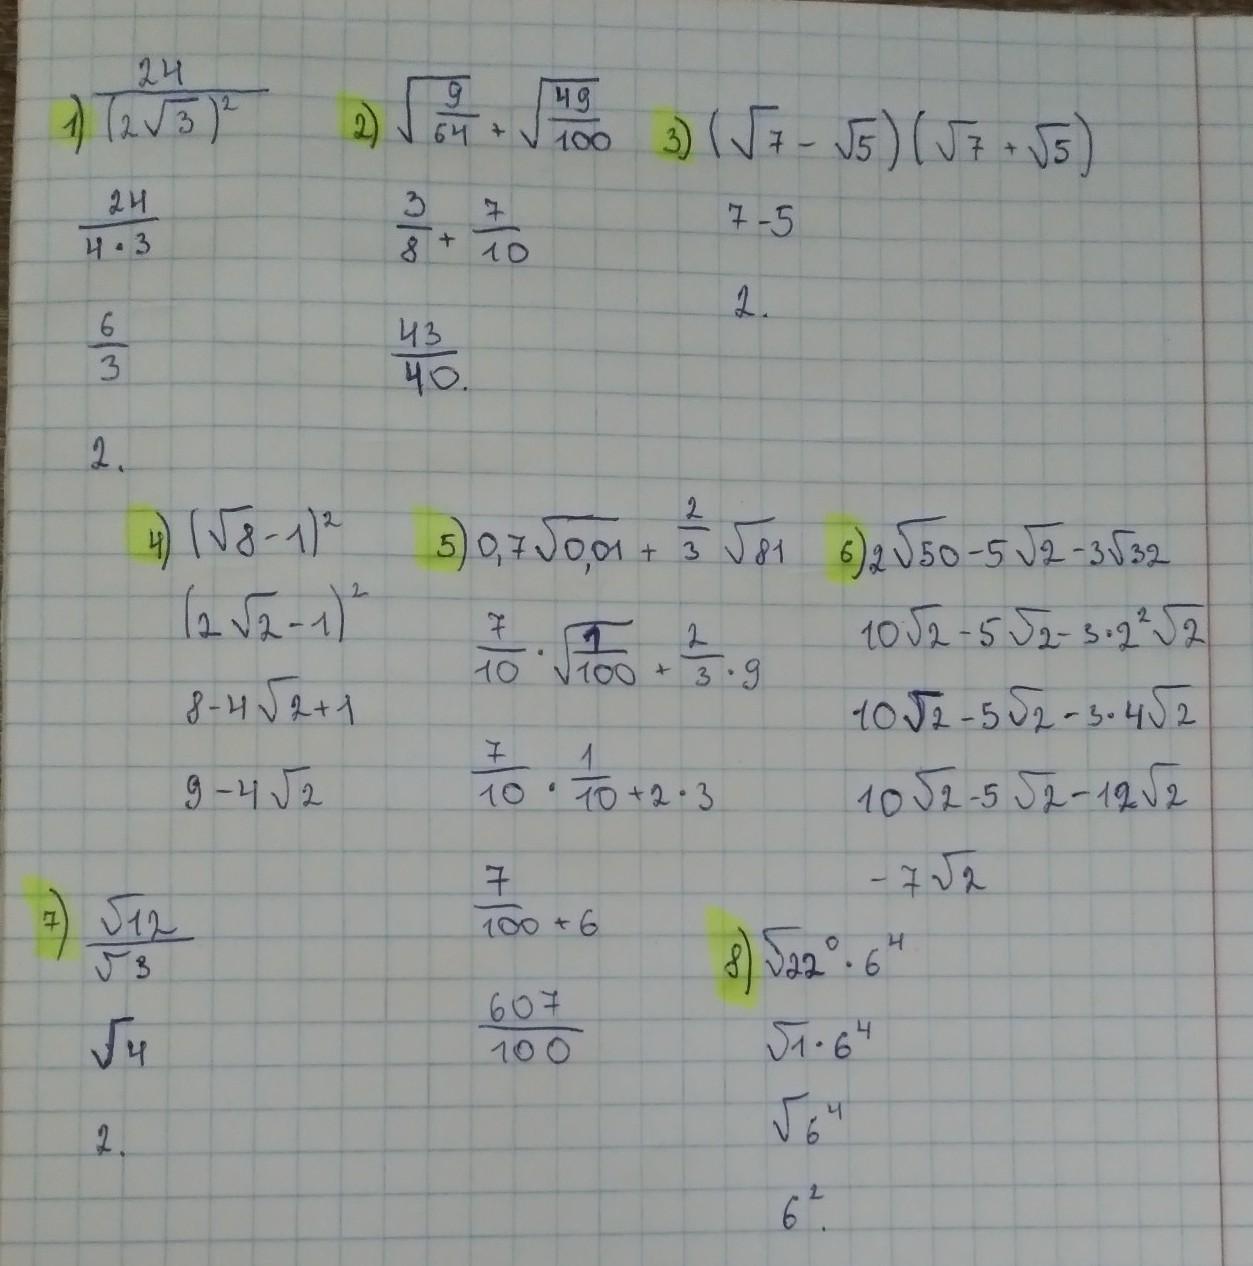 1) 24/(2√3)²
24/(4·3)
6/3
2.
2) √(9/64) + √(49/100)
3/8 + 7/10
43/40.
3) (√7 - √5)(√7 + √5)
7-5
2.
4) (√8-1)²
(2√2-1)²
8-4√2+1
9-4√2
5) 0,7√0,01 + 2/3 √81
7/10 · √(1/100) + 2/3 · 9
7/10 · 1/10 + 2·3
7/100 + 6
607/100
6) 2√50-5√2-3√32
10√2-5√2-3·2²√2
10√2-5√2-3·4√2
10√2-5√2-12√2
-7√2
7) √12/√3
√4
2.
8) √22⁰·6⁴
√1·6⁴
√6⁴
6².